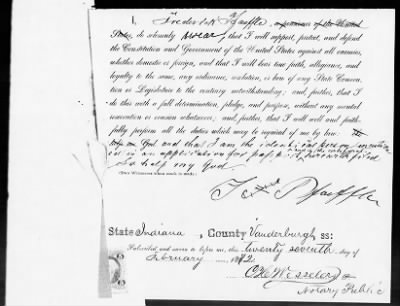 I, Frederick Pfaeffle, a citizen of the United
States, do solemnly swear, that I will support, protect, and defend
the Constitution and Government of the United States against all enemies,
whether domestic or foreign, and that I will bear true faith, allegiance, and
loyalty to the same, any ordinance, resolution, or law of any State Conven-
tion or Legislature to the contrary notwithstanding; and, further, that I
do this with a full determination, pledge, and purpose, without any mental
reservation or evasion whatsoever; and, further, that I will well and faith-
fully perform all the duties which may be required of me by law: So
help me God and that I am the identical person
in an application for passport herewith filed
So help my God.
Pfaeffle
State Indiana, County Vanderburgh, ss:
Subscribed and sworn to before me, this twenty seventh day of
February 1872
Notary Public